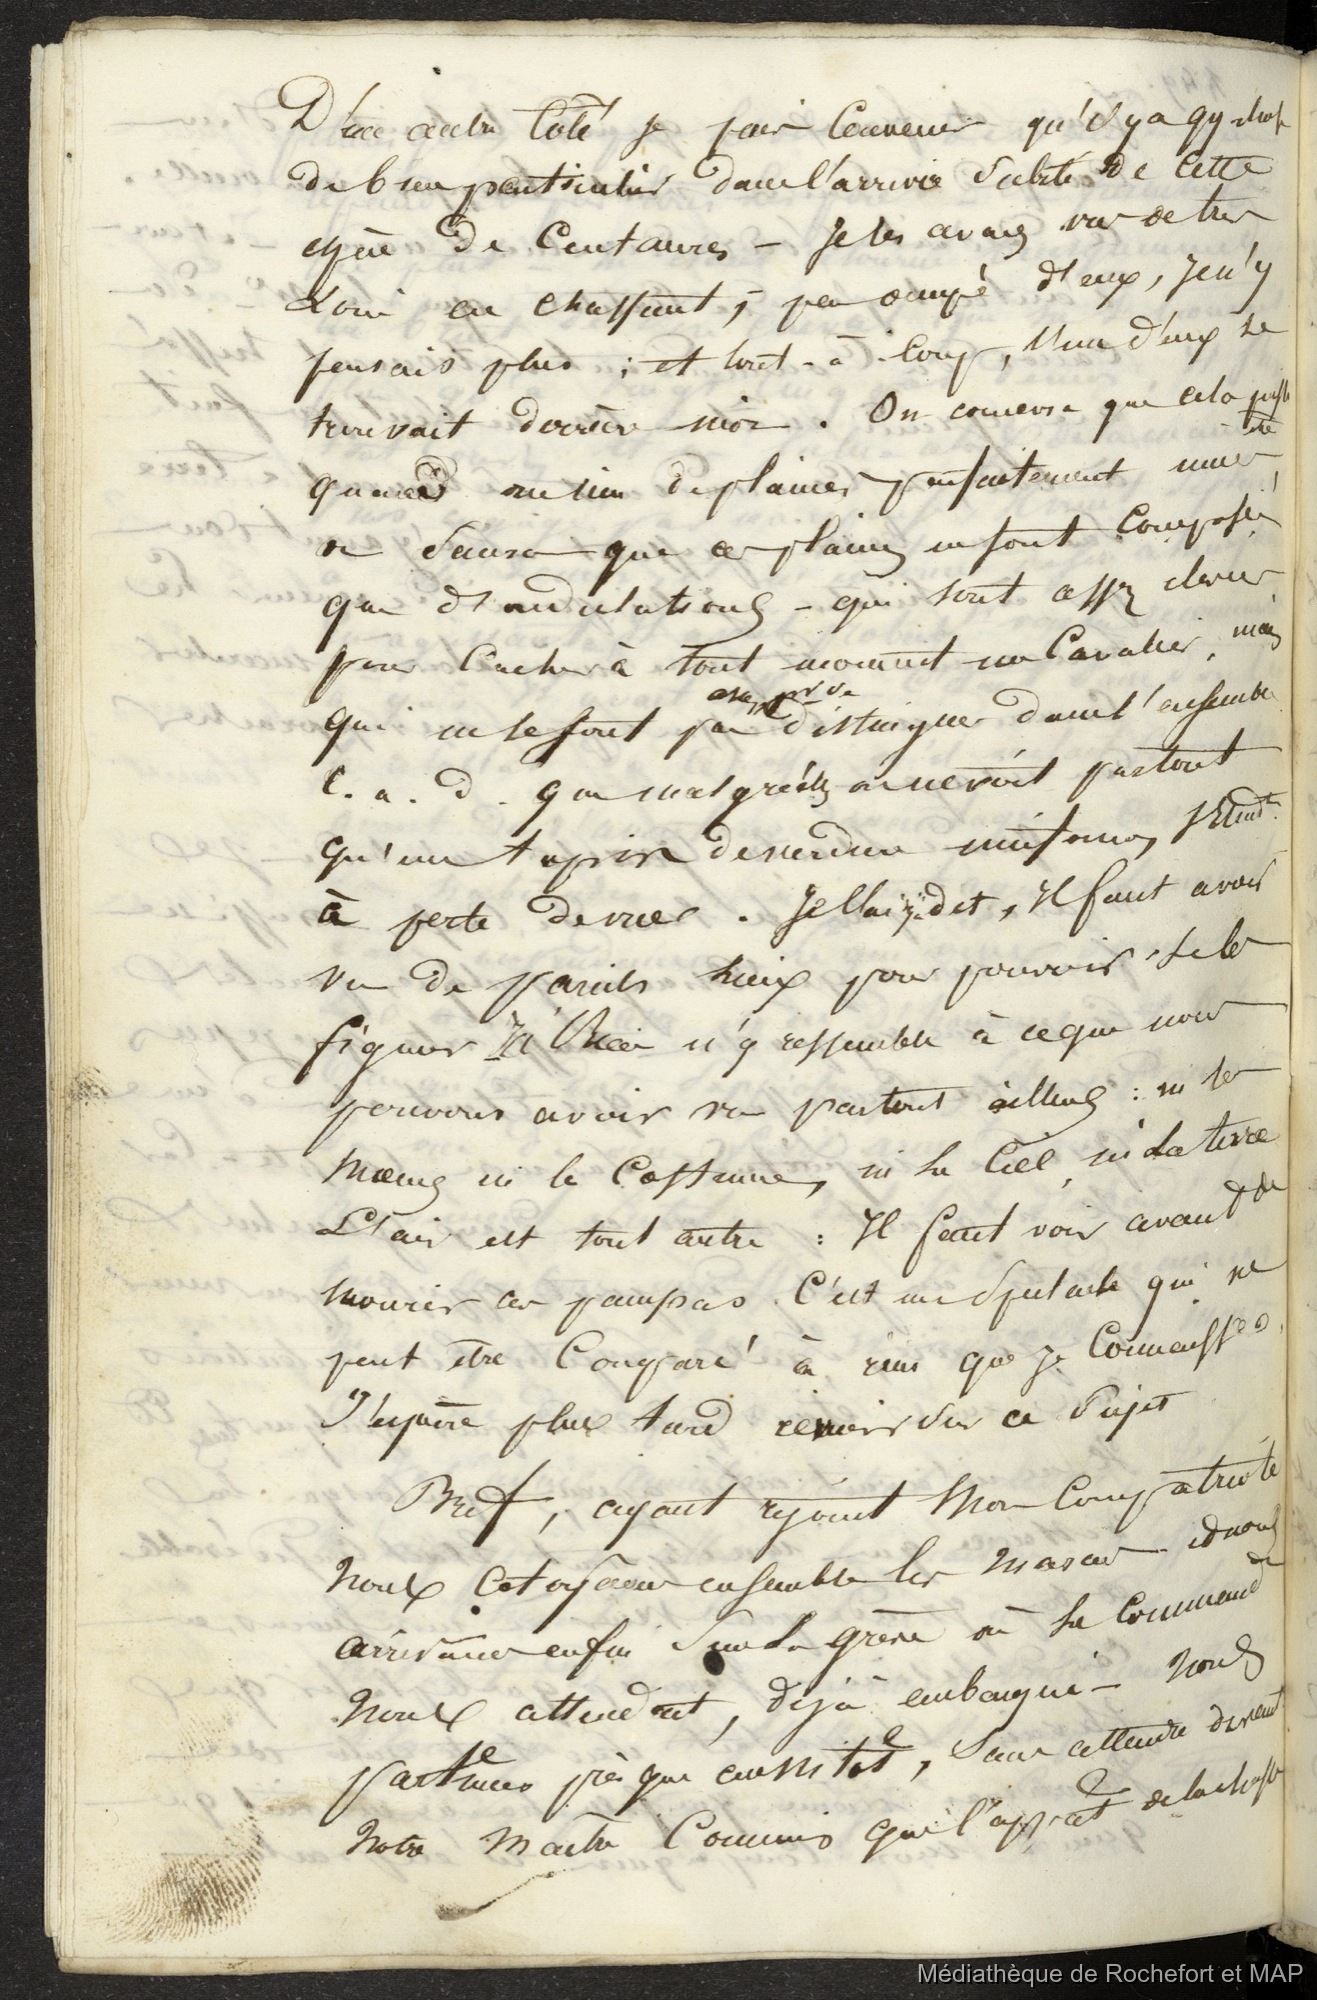 D'un autre Côté je puis Convenir qu'il y a qq chose
de bien particulier dans l'arrivée subite de Cette
espèce de Centaures – Je les avais vus de très
Loin en chassant, peu occupé d'eux, je n'y
pensais plus ; et tout-à-Coup, l'un d'eux se
trouvait derrière moi. On concevra que cela puisse être
quand au lieu de plaines parfaitement unies
on saura que ces plaines ne sont Composées
que d'ondulations – qui sont assez élevées
pour Cacher à tout moment un Cavalier, mais
qui ne se font pas distinguer dans l'ensemble
C. a. d. que malgré elles on ne voit partout
qu'un tapis de verdure uniforme, s'étendt
à perte de vue. Je l'ai dit, Il faut avoir
vu de pareils lieux pour pouvoir se les
figurer Ici Rien n'y ressemble à ce que nous
pouvons avoir vu partout ailleurs : ni les
Moeurs ni le Costume, ni le Ciel, ni La terre
L'air est tout autre : Il faut voir avant de
mourir ces pampas. C'est un Spectacle qui ne
peut être Comparé à rien que je Connaisse.
J'espère plus tard revenir sur ce Sujet
Bref, ayant rejoint Mon Compatriote
Nous Cotoyâmes ensemble les marais et nous
arrivâmes enfin Sur La grève où le Command
Nous attendait, déjà embarqué – Nous
partîmes presque aussitôt, Sans attendre davant
Notre Maître Commis que l'appât de la chasse
Médiathèque de Rochefort et MAP